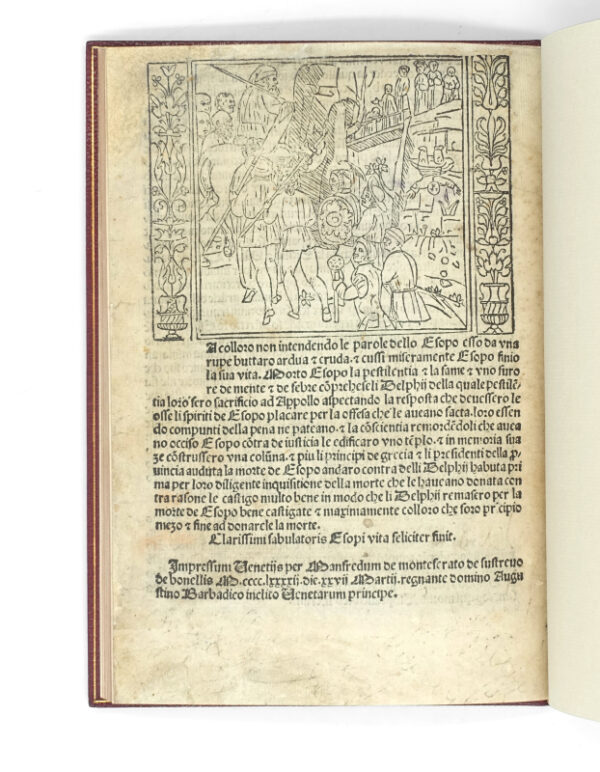 A colloro non intendendo le parole dello Esopo esso da vna
rupe buttaro ardua & cruda. & cussi miseramente Esopo finio
la sua vita. Morto Esopo la pestilentia & la fame & vno furo
re de mente & de febre cōprehese li Delphij della quale pestilē-
tia loro fero sacrificio ad Appollo aspectando la resposta che deuessero le
osse li spiriti de Esopo placare per la offesa che le aueano facta. loro essen
do compunti della pena ne pateano. & la cōscientia remordēdoli che auea
no occiso Esopo cōtra de iusticia le edificaro vno tēplo. & in memoria sua
ze cōstrussero vna colūna. & piu li principi de grecia & li presidenti della ꝓ-
uincia audita la morte de Esopo andaro contra delli Delphij habuta pri
ma per loro diligente inquisitione della morte che le haueano donata con
tra rasone le castigo multo bene in modo che li Delphij remasero per la
morte de Esopo bene castigate & maximamente colloro che foro pricipio
mezo & fine ad donarele la morte.
Clarissimi fabulatoris Esopi vita feliciter finit.
Impressum Uenetijs per Manfredum de monteferato de sustreuo
de bonellis M.cccc.lxxxxij. die. xxvij Martij. regnante domino Augu
stino Barbadico inclito Uenetarum principe.